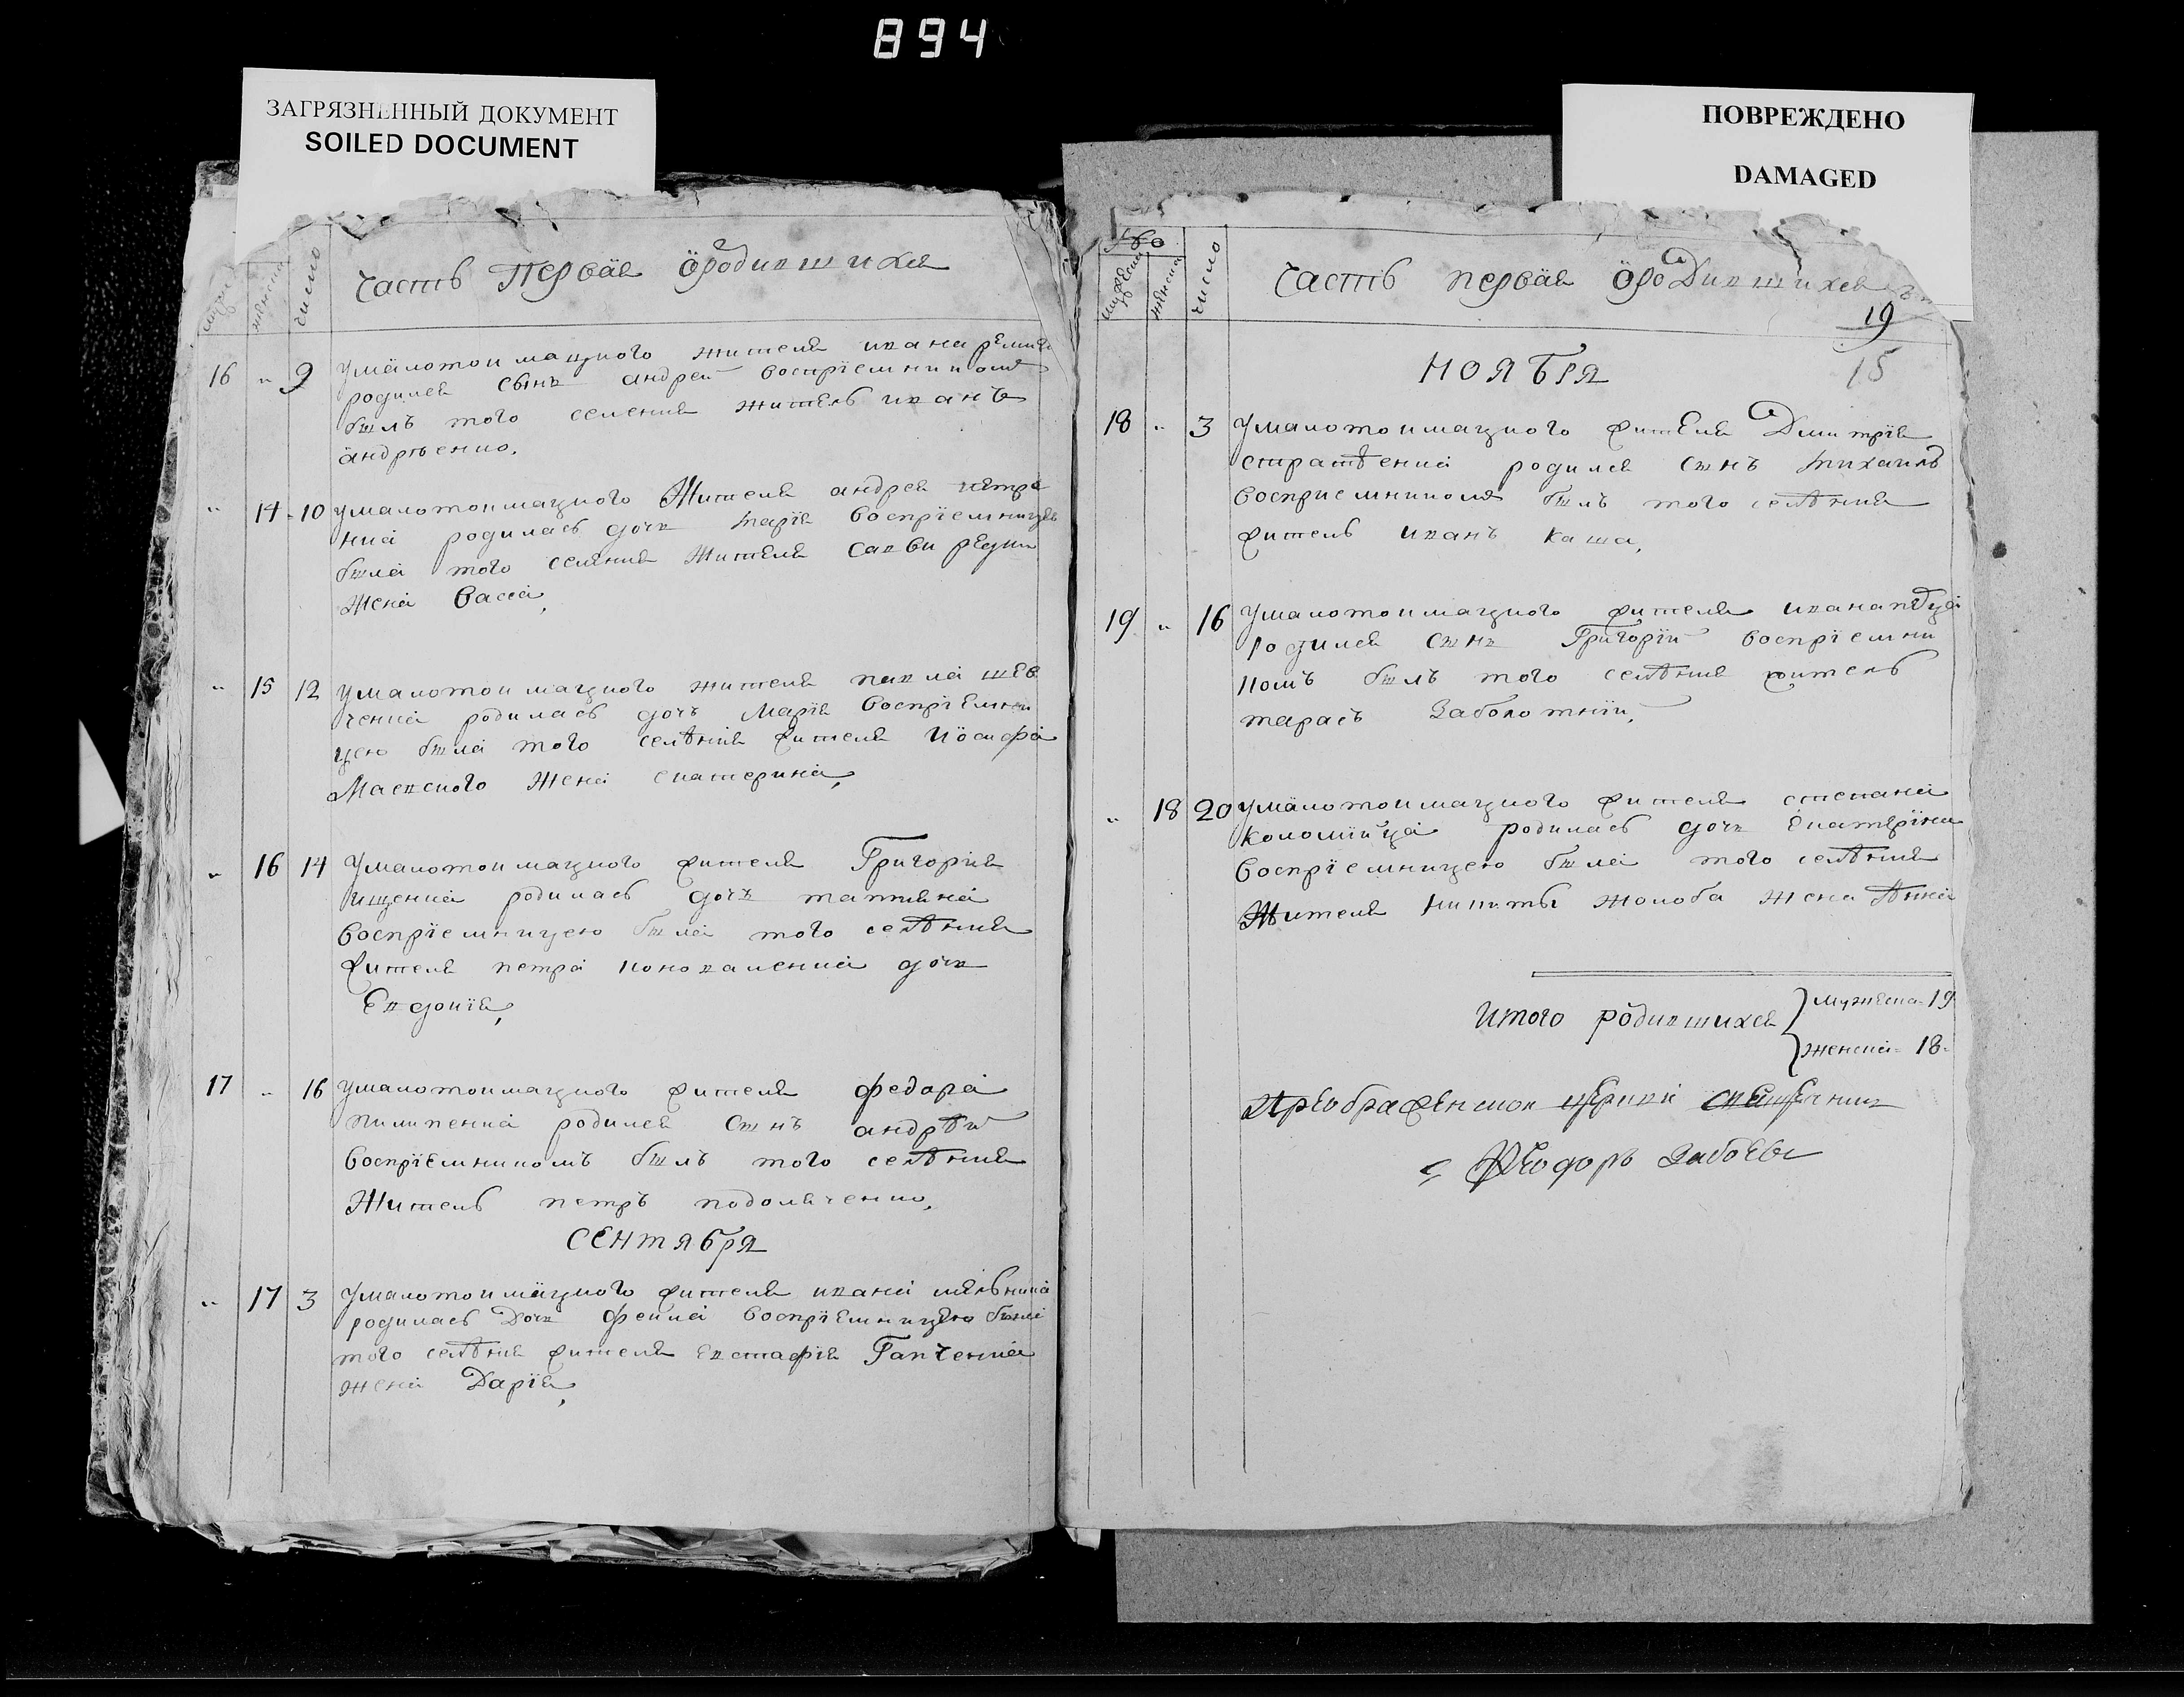 894
ЗАГРЯЗНЕННЫЙ ДОКУМЕНТ
SOILED DOCUMENT
ПОВРЕЖДЕНО
DAMAGED
женска
число
Часть Первая ӧродившихся
16 " 9 Умалотокмацкого жителя ивана
родился сынъ андрей воспріемникомъ
былъ того селения житель иванъ
андрѣенко.
" 14 10 умалотокмацкого Жителя андрея петре
нка родилась дочь марія воспріемницею
была того селения жителя саввы
жена васса,
" 15 12 умалотокмацкого жителя павла шев
ченка родилась дочь Марія воспріемни
цею была того селѣнія жителя иӧсифа
Маевского жена екатерина,
" 16 14 Умалотокмацкого жителя Григорія
ищенка родилась дочь татияна
воспріемницею была того селѣния
жителя петра коноваленка дочь
Евдокія,
17 " 16 умалотокмацкого жителя федора
пилипенка родился сынъ андрѣй
воспріемникомъ былъ того селѣния
Житель петръ подоляченко,
СЕНТЯБРЯ
" 17 3 Умалотокмацкого жителя ивана мельника
родилась Дочь фекла воспріемницею была
того селѣния жителя евстафія Гапченка
жена Дарія,
мужеска
женска
число
Часть первая ӧродившихся
19
15
НОЯБРЯ
18 " 3 Умалотокмацкого жителя Дмитрія
страшенка родился сынъ михаилъ
восприемникомъ былъ того селѣния
житель иванъ каша,
19 " 16 Умалотокмацкого жителя ивана
родился сынъ Григорій воспріемни
комъ былъ того селѣния житель
тарасъ Заболотній,
" 18 20 умалотокмацкого жителя степана
коломійца родилась дочь Екатеріна
воспріемницею была того селѣния
Жителя никиты жолоба жена Анна
Итого родившихся мужеска 19
женска 18
Преображенской церкви священникъ
Феодоръ